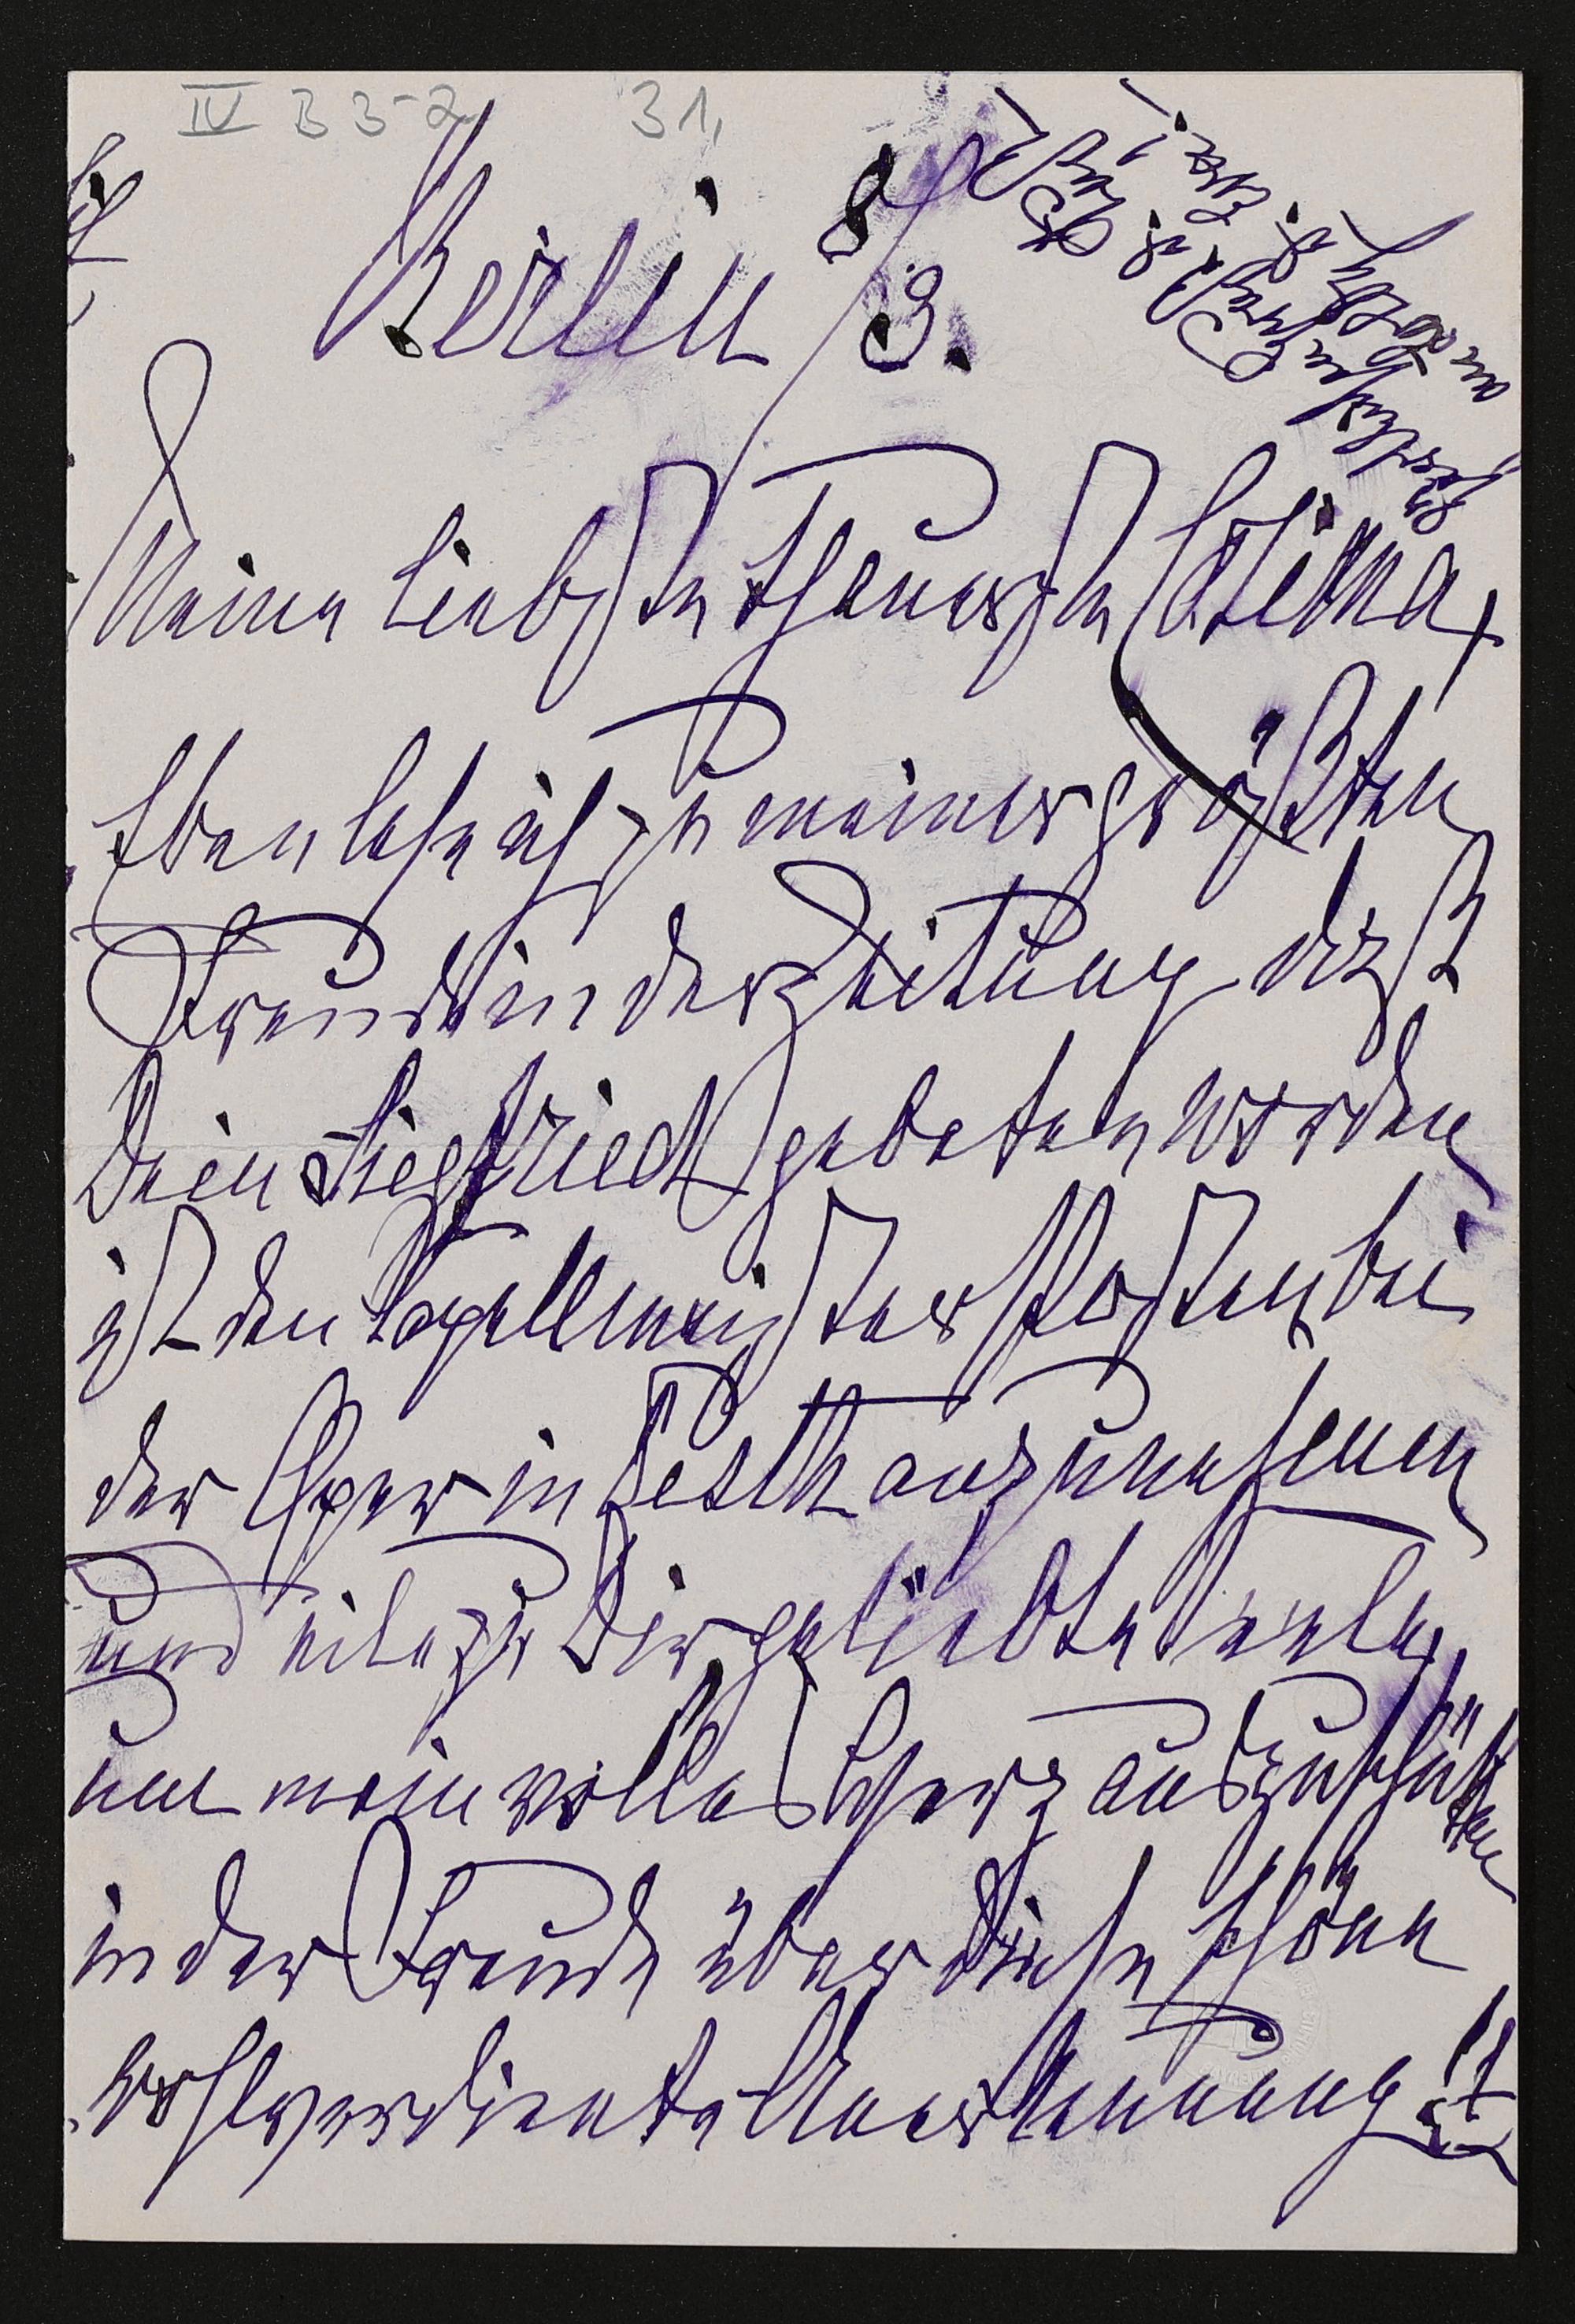 IV B 3-2 31,
Berlin 8/3.
Meine liebste theuerste Cosima,
Eben lese ich zu meiner größten
Freude in der Zeitung, daß
Dein Siegfried gebeten worden
ist den Capellmeister Posten bei
der Oper in Pesth anzunehmen
und eile zu Dir geliebte Seele,
um mein volles Herz auszuschütten
in der Freude über diese schöne
wohlverdiente Anerkennung!!